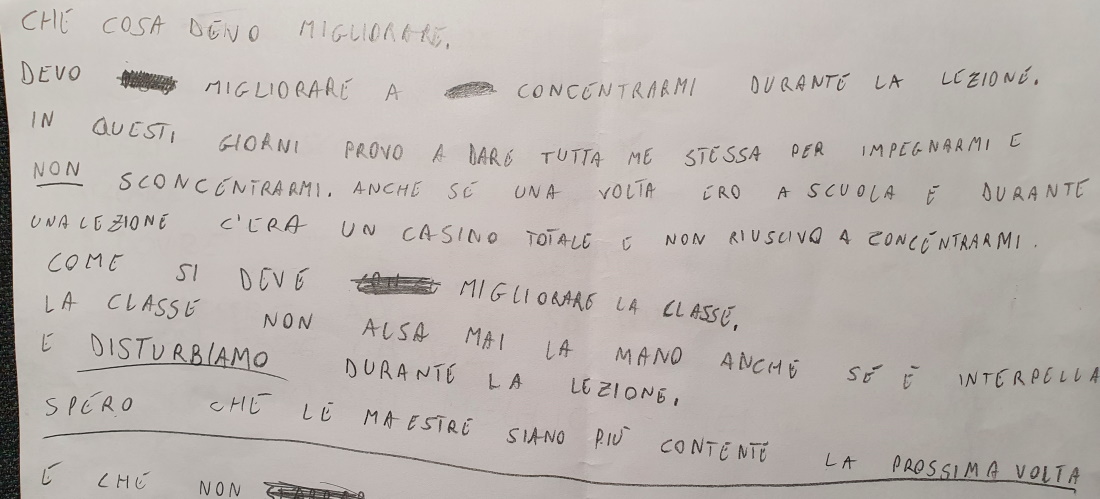 CHE COSA DEVO MIGLIORARE.
DEVO MIGLIORARE A CONCENTRARMI DURANTE LA LEZIONE.
IN QUESTI GIORNI PROVO A DARE TUTTA ME STESSA PER IMPEGNARMI E
NON SCONCENTRARMI. ANCHE SE UNA VOLTA ERO A SCUOLA E DURANTE
UNA LEZIONE C'ERA UN CASINO TOTALE E NON RIUSCIVO A ZONCENTRARMI.
COME SI DEVE MIGLIORARE LA CLASSE.
LA CLASSE NON ALSA MAI LA MANO ANCHE SE È INTERPELLA
E DISTURBIAMO DURANTE LA LEZIONE.
SPERO CHE LE MAESTRE SIANO PIÙ CONTENTE LA PROSSIMA VOLTA
E CHE NON